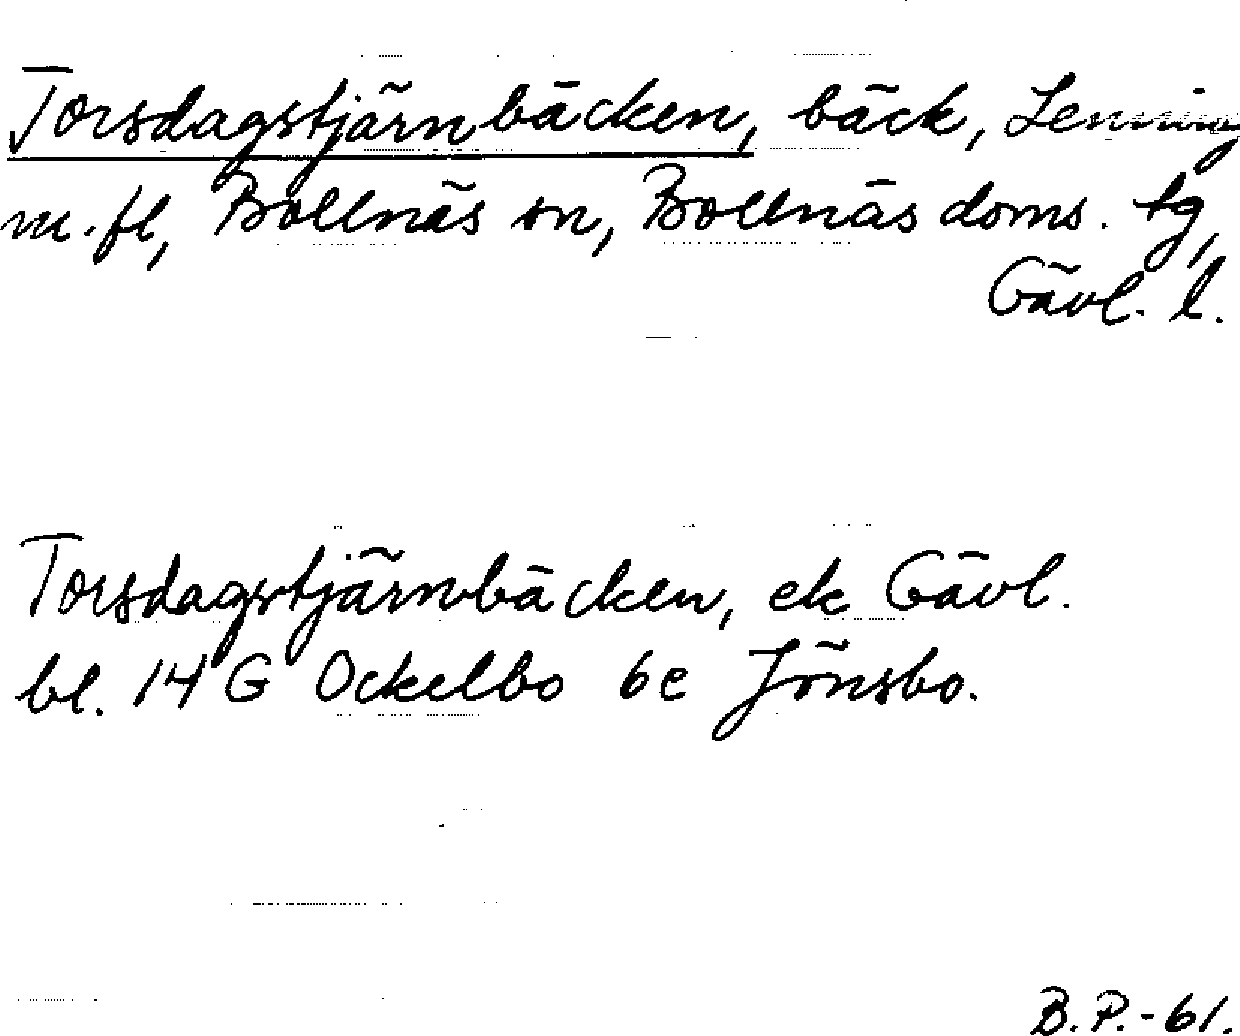 Torsdagstjärnbäcken, bäck, Lenninge
m.fl, Bollnäs sn, Bollnäs doms. tg,
Gävl. l.
Torsdagstjärnbäcken, ek Gävl.
bl. 14 G Ockelbo 6e Jönsbo.
B.P.-61.